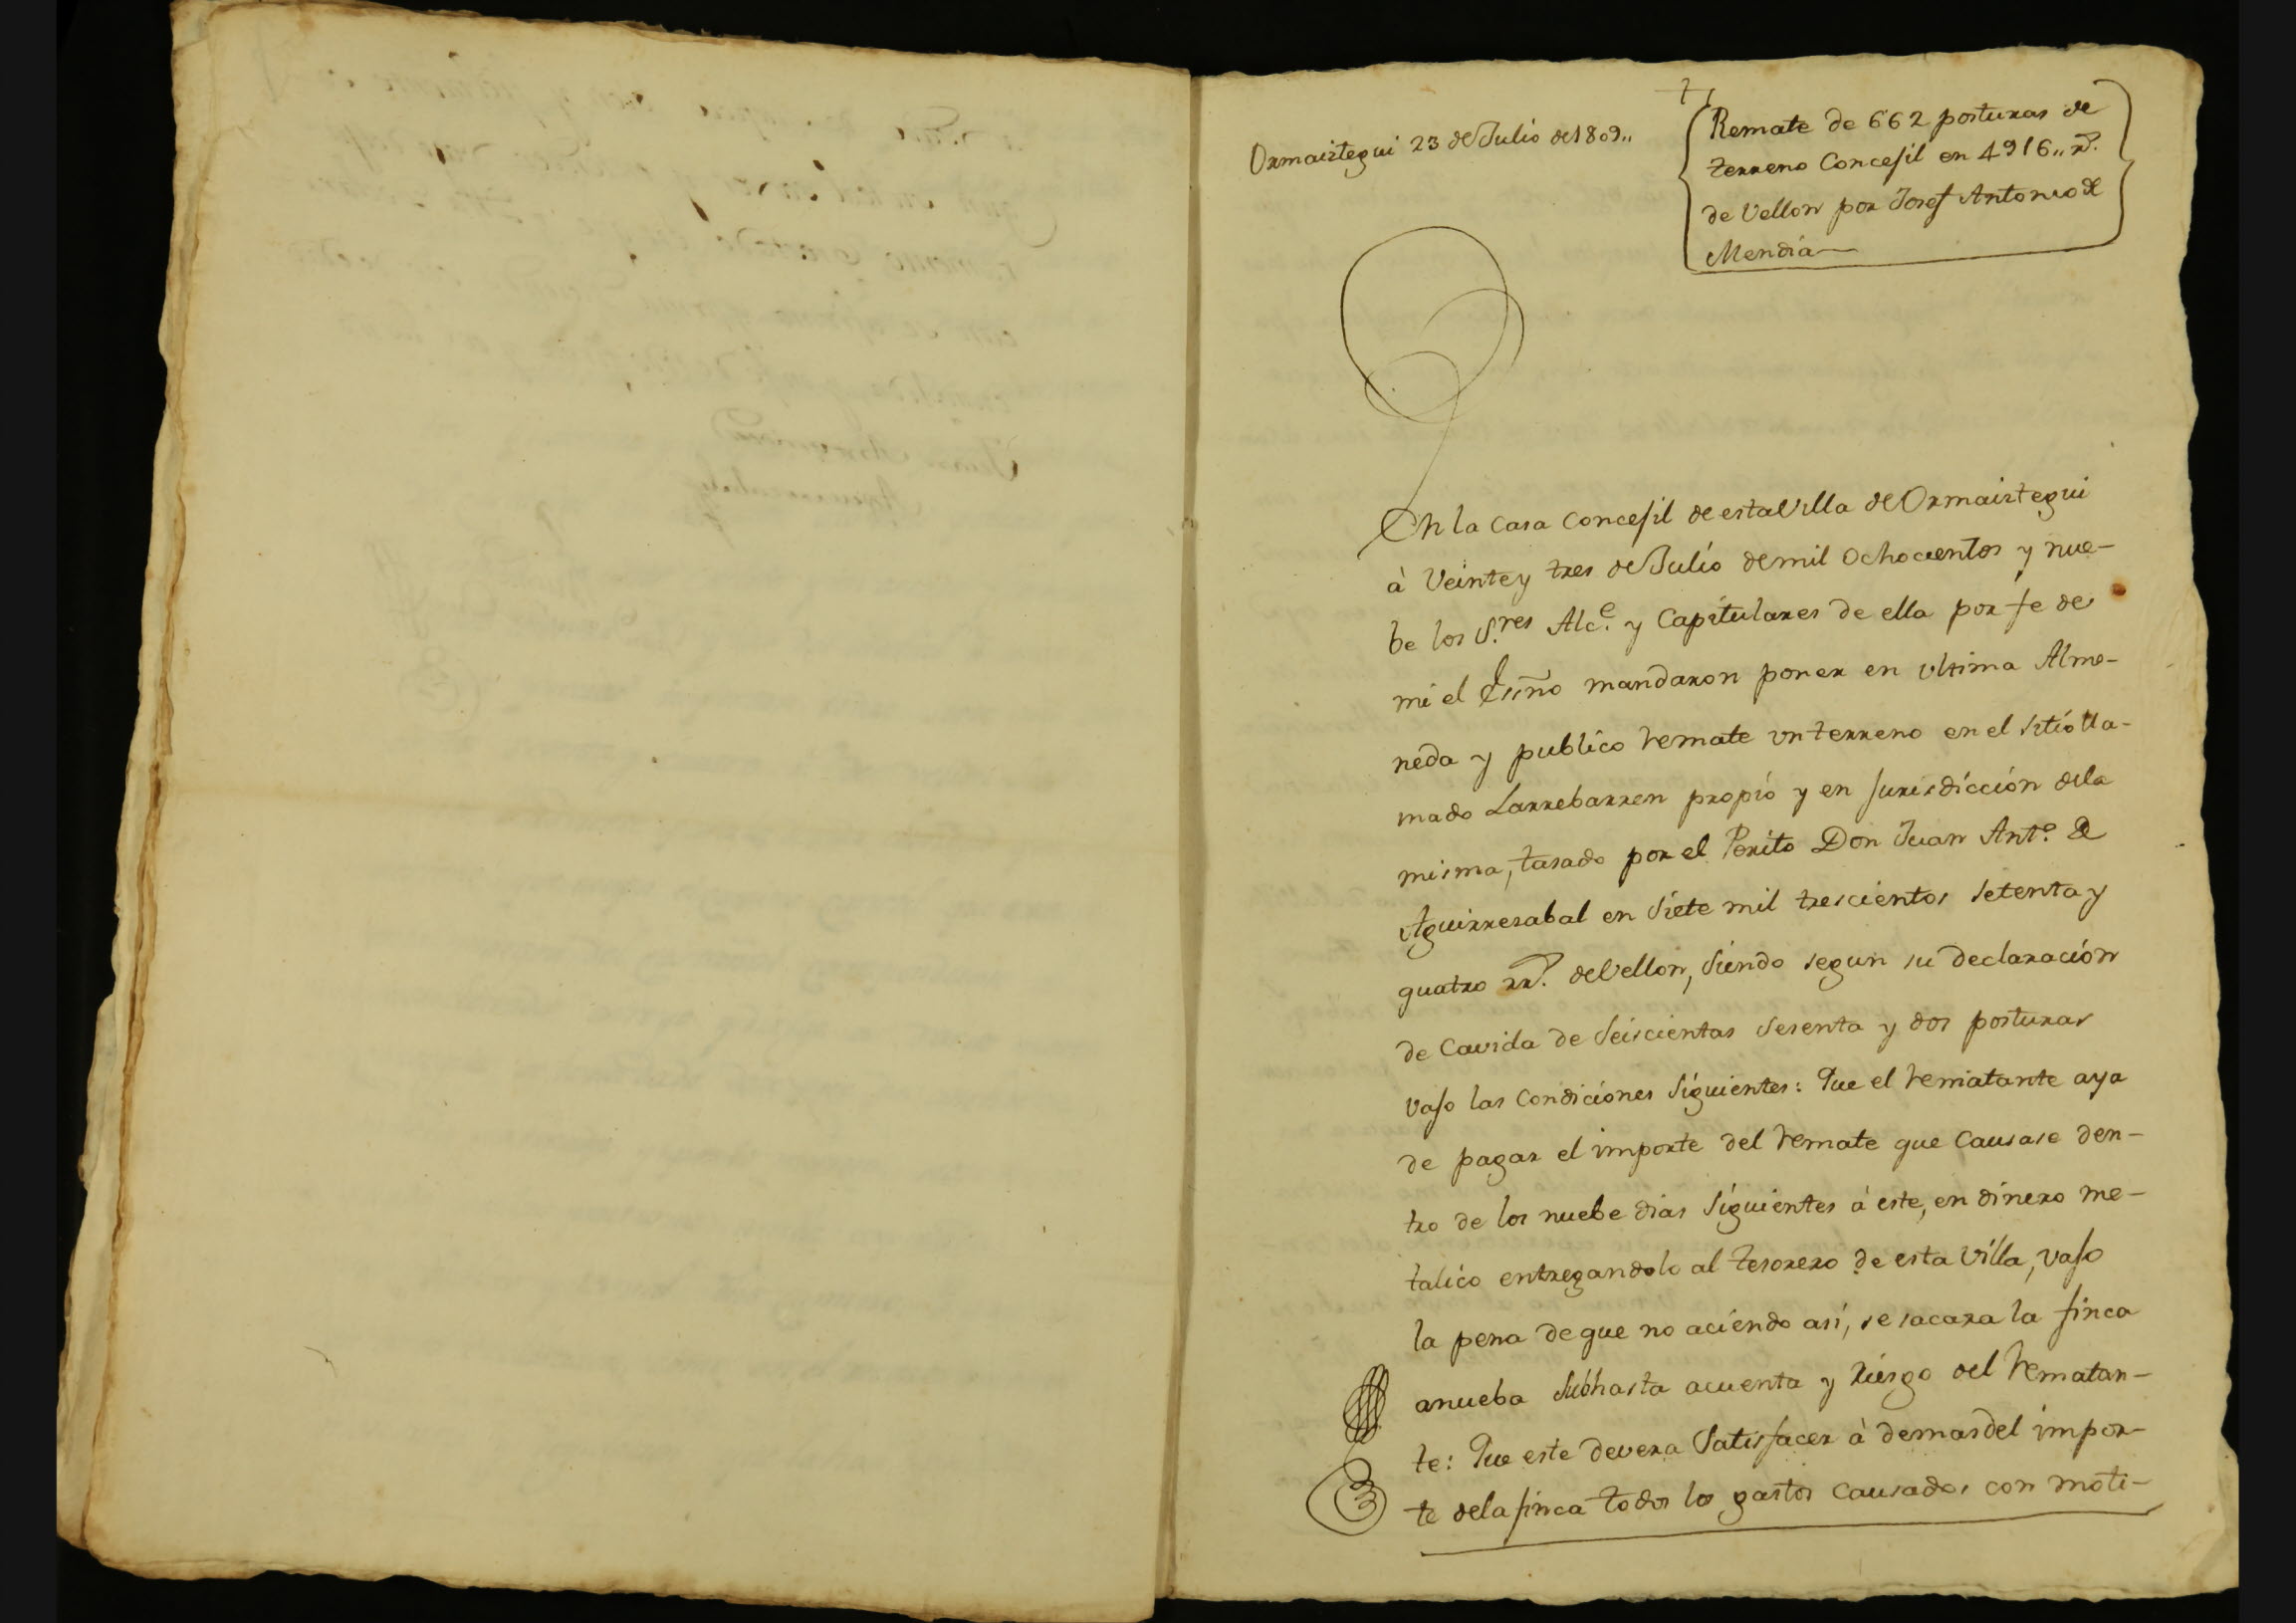 Ormaiztegui 23 de Julio de 1809,,
Remate de 662 posturas de
terreno Concejil en 4916,, rs.
de Vellon por Josef Antonio de
Mendia
En la Casa Concejil de esta Villa de Ormaiztegui
à Veinte y tres de Julio de mil Ochocientos y nue-
be los S.res Alc.e y Capitulares de ella por fe de
mi el Essno mandaron poner en ultima Alme-
neda y publico remate un terreno en el sitio lla-
mado Larrebarren propio y en jurisdiccion dela
misma, tasado por el Perito Don Juan Ant.o de
Aguirresabal en Siete mil trescientos setenta y
quatro rrs. de Vellon, Siendo segun su declaración
de Cavida de Seiscientas Sesenta y dos posturas
vajo las Condiciones Siguientes: Que el rematante aya
de pagar el importe del remate que Causase den-
tro de los nuebe dias Siguientes à este, en dinero me-
talico entregandolo al tesorero de esta Villa, vajo
la pena de que no aciendo asi, se sacara la finca
anueba Subhasta acuenta y riesgo del rematan-
te: Que este devera Satisfacer à demas del impor-
te dela finca todos los gastos Causados con moti-